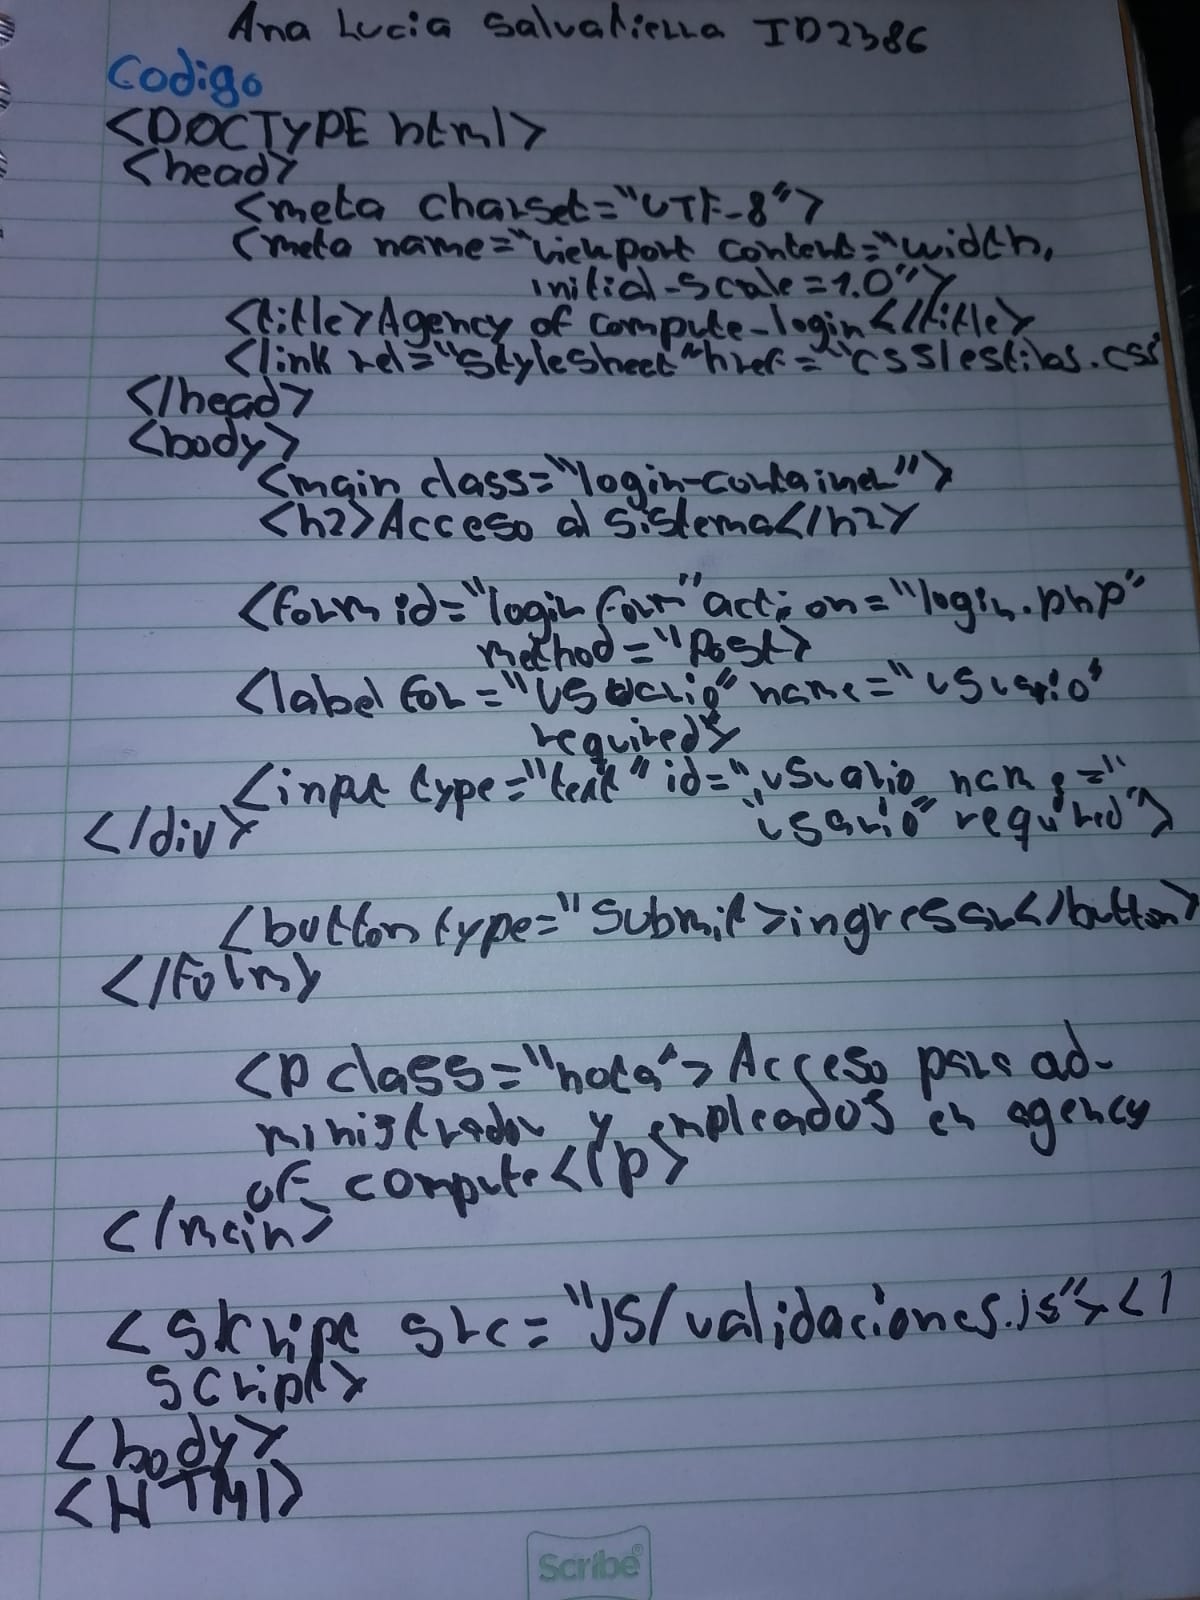 Ana Lucia Salvatierra ID2386
Codigo
<DOCTYPE html>
<head>
<meta charset="UTF-8">
<meta name="viewport content="width,
initial-scale=1.0">
<title>Agency of compute-login</title>
<link rel="stylesheet" href="css/estilos.css
</head>
<body>
<main class="login-container">
<h2>Acceso al sistema</h2>
<form id="login form" action="login.php"
method="Post>
<label for="usuario" name="usuario"
required>
<input type="text" id="usuario name="
usario" required">
</div>
<button type="submit>ingresar</button>
</form>
<p class="nota"> Acceso para ad-
ministrador y empleados en agency
of compute</p>
</main>
<skript src="js/validaciones.js"></
script>
<body>
<HTMl>
Scribe®